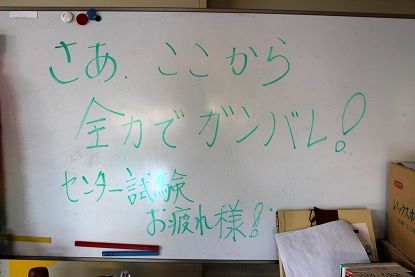 さあ、ここから
全力でガンバレ!
センター試験
お疲れ様!